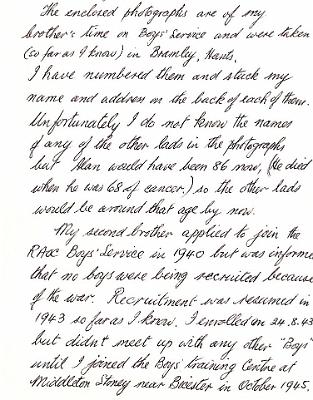 The enclosed photographs are of my
brother's time on Boys' Service and were taken
(so far as I know) in Bramley, Hants.
I have numbered them and stuck my
name and address on the back of each of them.
Unfortunately I do not know the names
of any of the other lads in the photographs
but Alan would have been 86 now, (He died
when he was 68 of cancer.) so the other lads
would be around that age by now.
My second brother applied to join the
RAOC Boys' Service in 1940 but was informe
that no boys were being recruited because
of the war. Recruitment was resumed in
1943 so far as I know. I enrolled on 24.8.43
but didn't meet up with any other "Boys"
until I joined the Boys' training Centre at
Middleton Stoney near Bicester in October 1945.